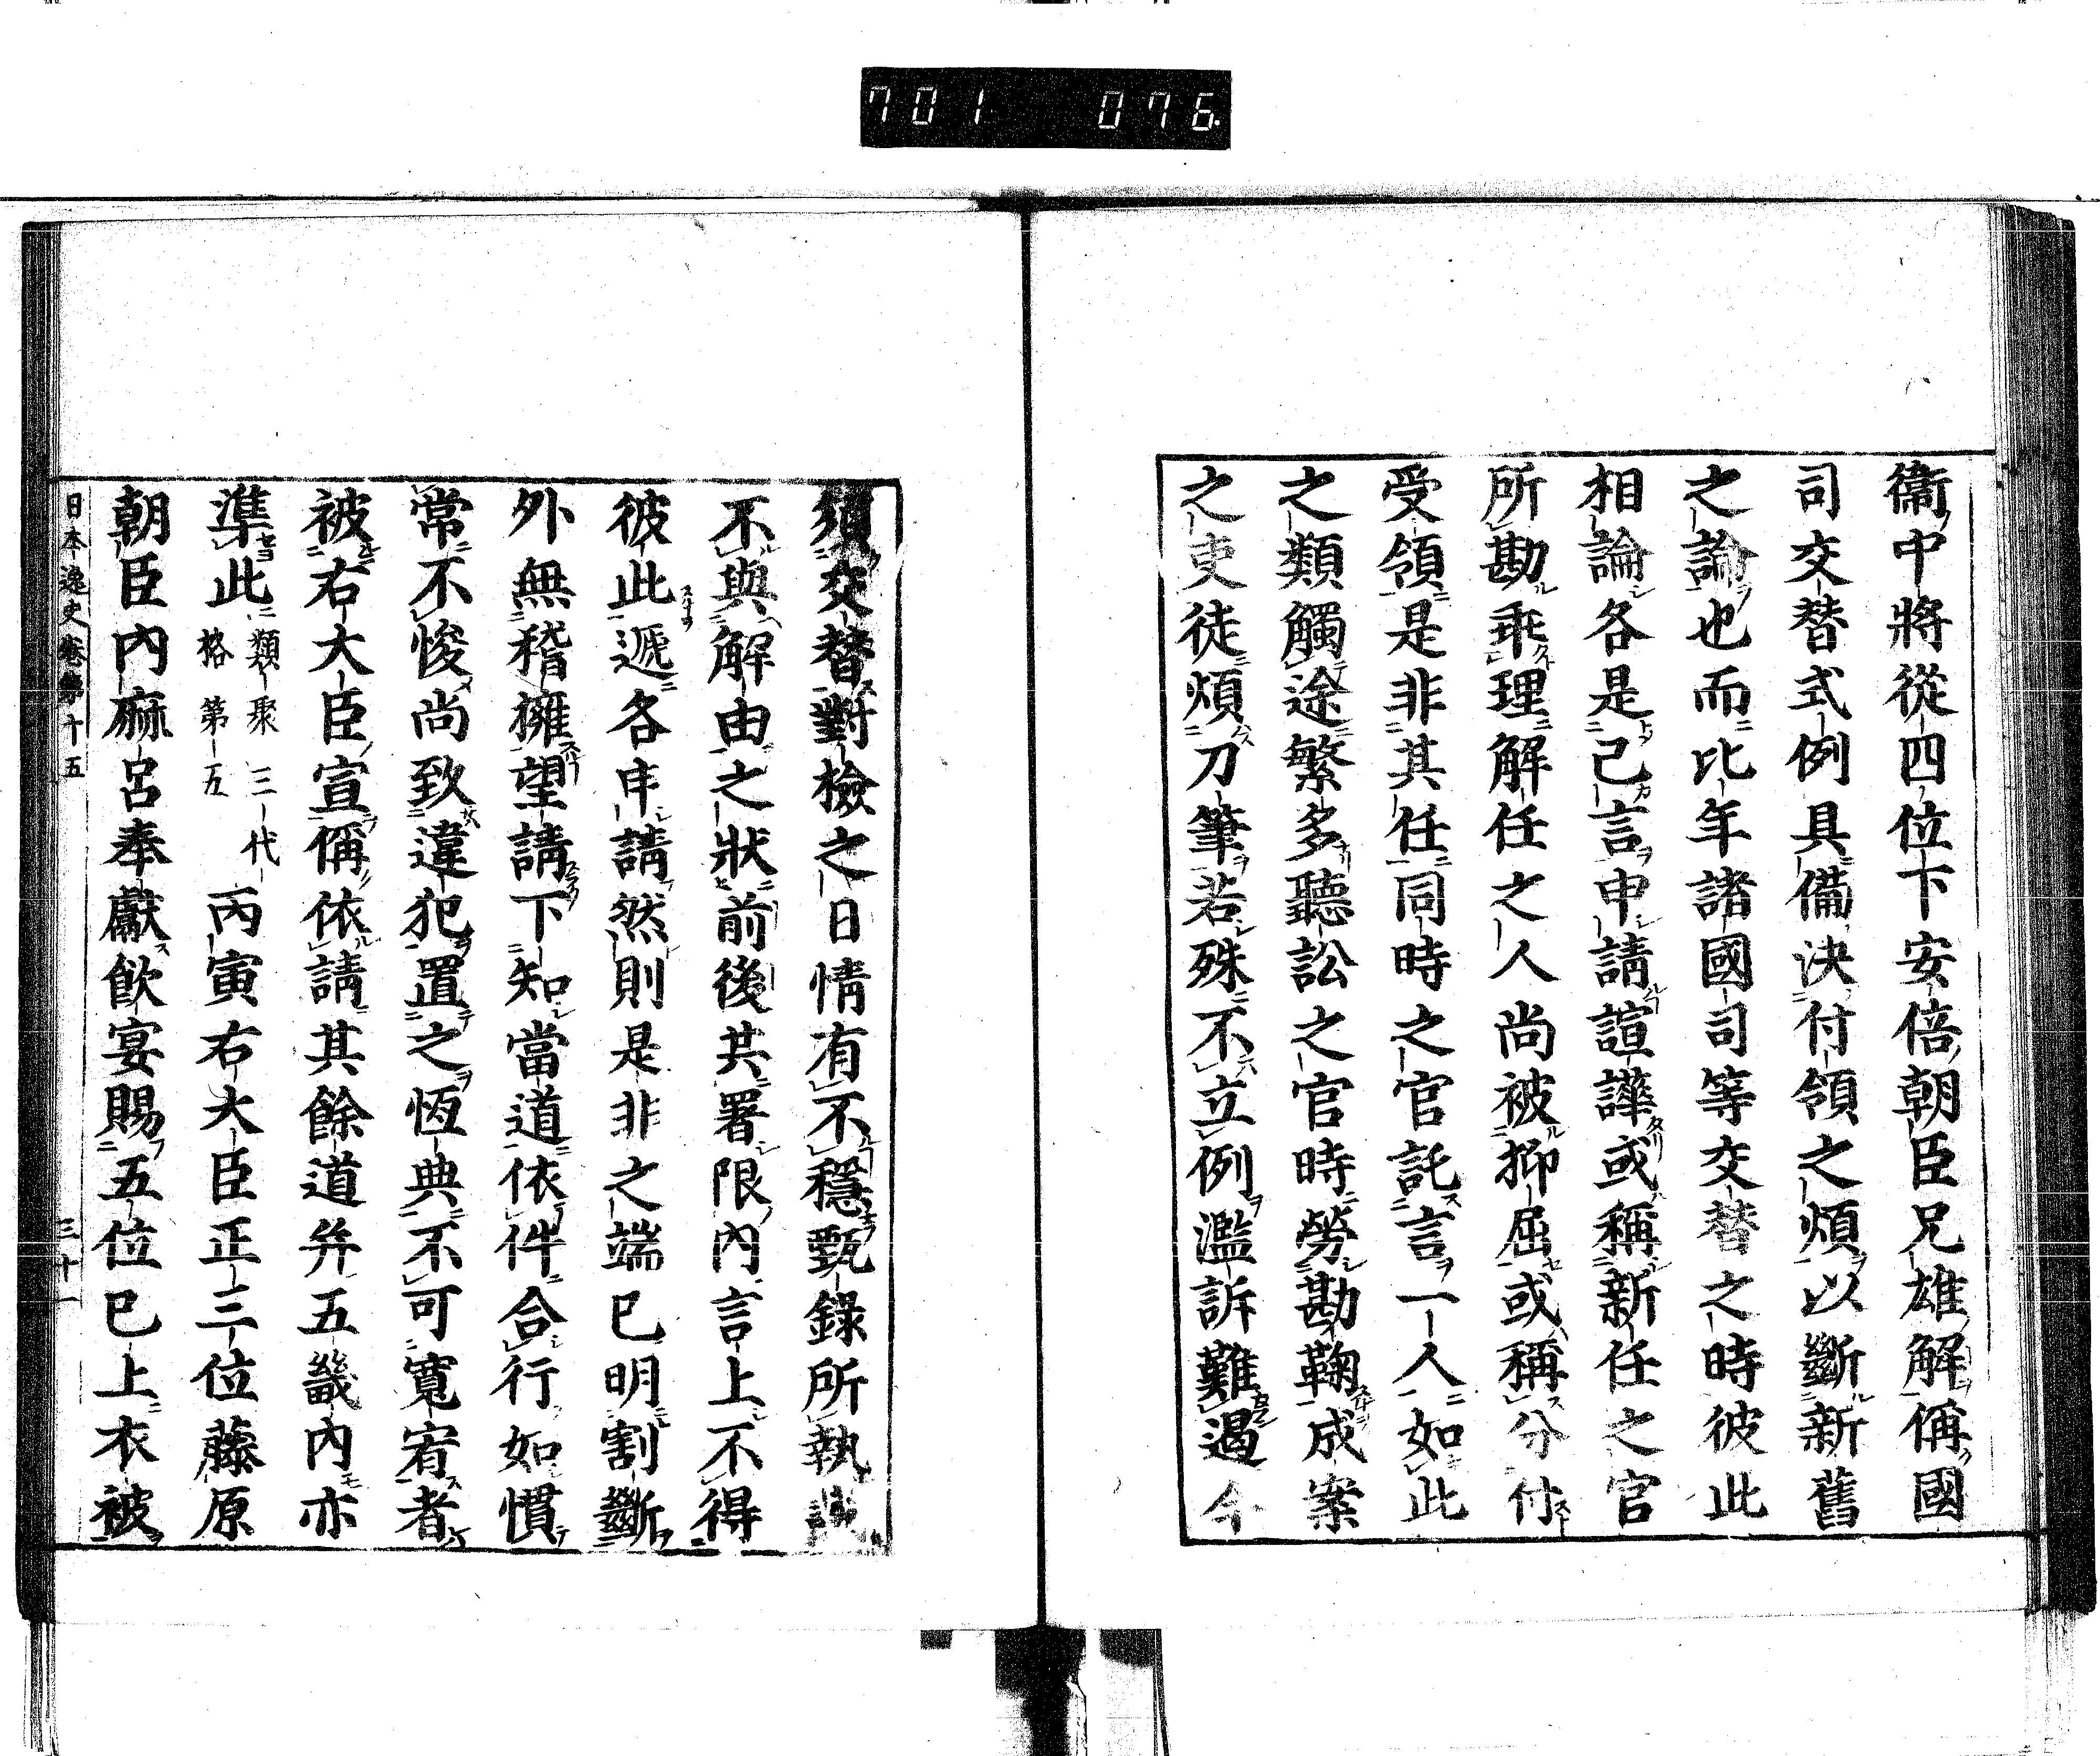 701 076.
衞中將從四位下安倍朝臣兄雄解偁國
司交替式例具備決付領之煩以斷新舊
之論也而比年諸國司等交替之時彼此
相論各是己言申請諠譁或稱新任之官
所勘乖理解任之人尚被抑屈或稱分付
受領是非其任同時之官託言一人如此
之類觸途繁多聽訟之官時勞勘鞠成案
之吏徒煩刀筆若殊不立例濫訴難遏今
須交替對檢之日情有不穩甄錄所執
不與解由之狀前後共署限內言上不得
彼此遞各申請然則是非之端已明割斷
外無稽擁望請下知當道依件合行如慣
常不悛尚致違犯置之恆典不可寬宥者
被右大臣宣偁依請其餘道并五畿內亦
準此類聚三代格第五 丙寅右大臣正三位藤原
朝臣內麻呂奉獻飮宴賜五位已上衣被
日本逸史卷第十五 三十一